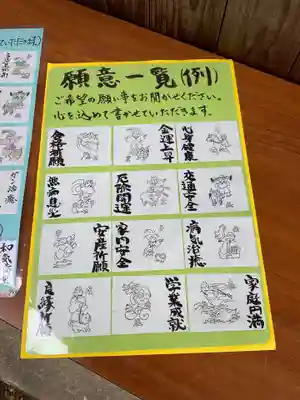 願意一覧(例)
ご希望の願い事をお聞かせください。
心を込めて書かせていただきます。
心身健康
金運上昇
合格祈願
交通安全
厄除開運
無病息災
病気治癒
家内安全
安産祈願
家庭円満
学業成就
良縁祈願
ていただきます。